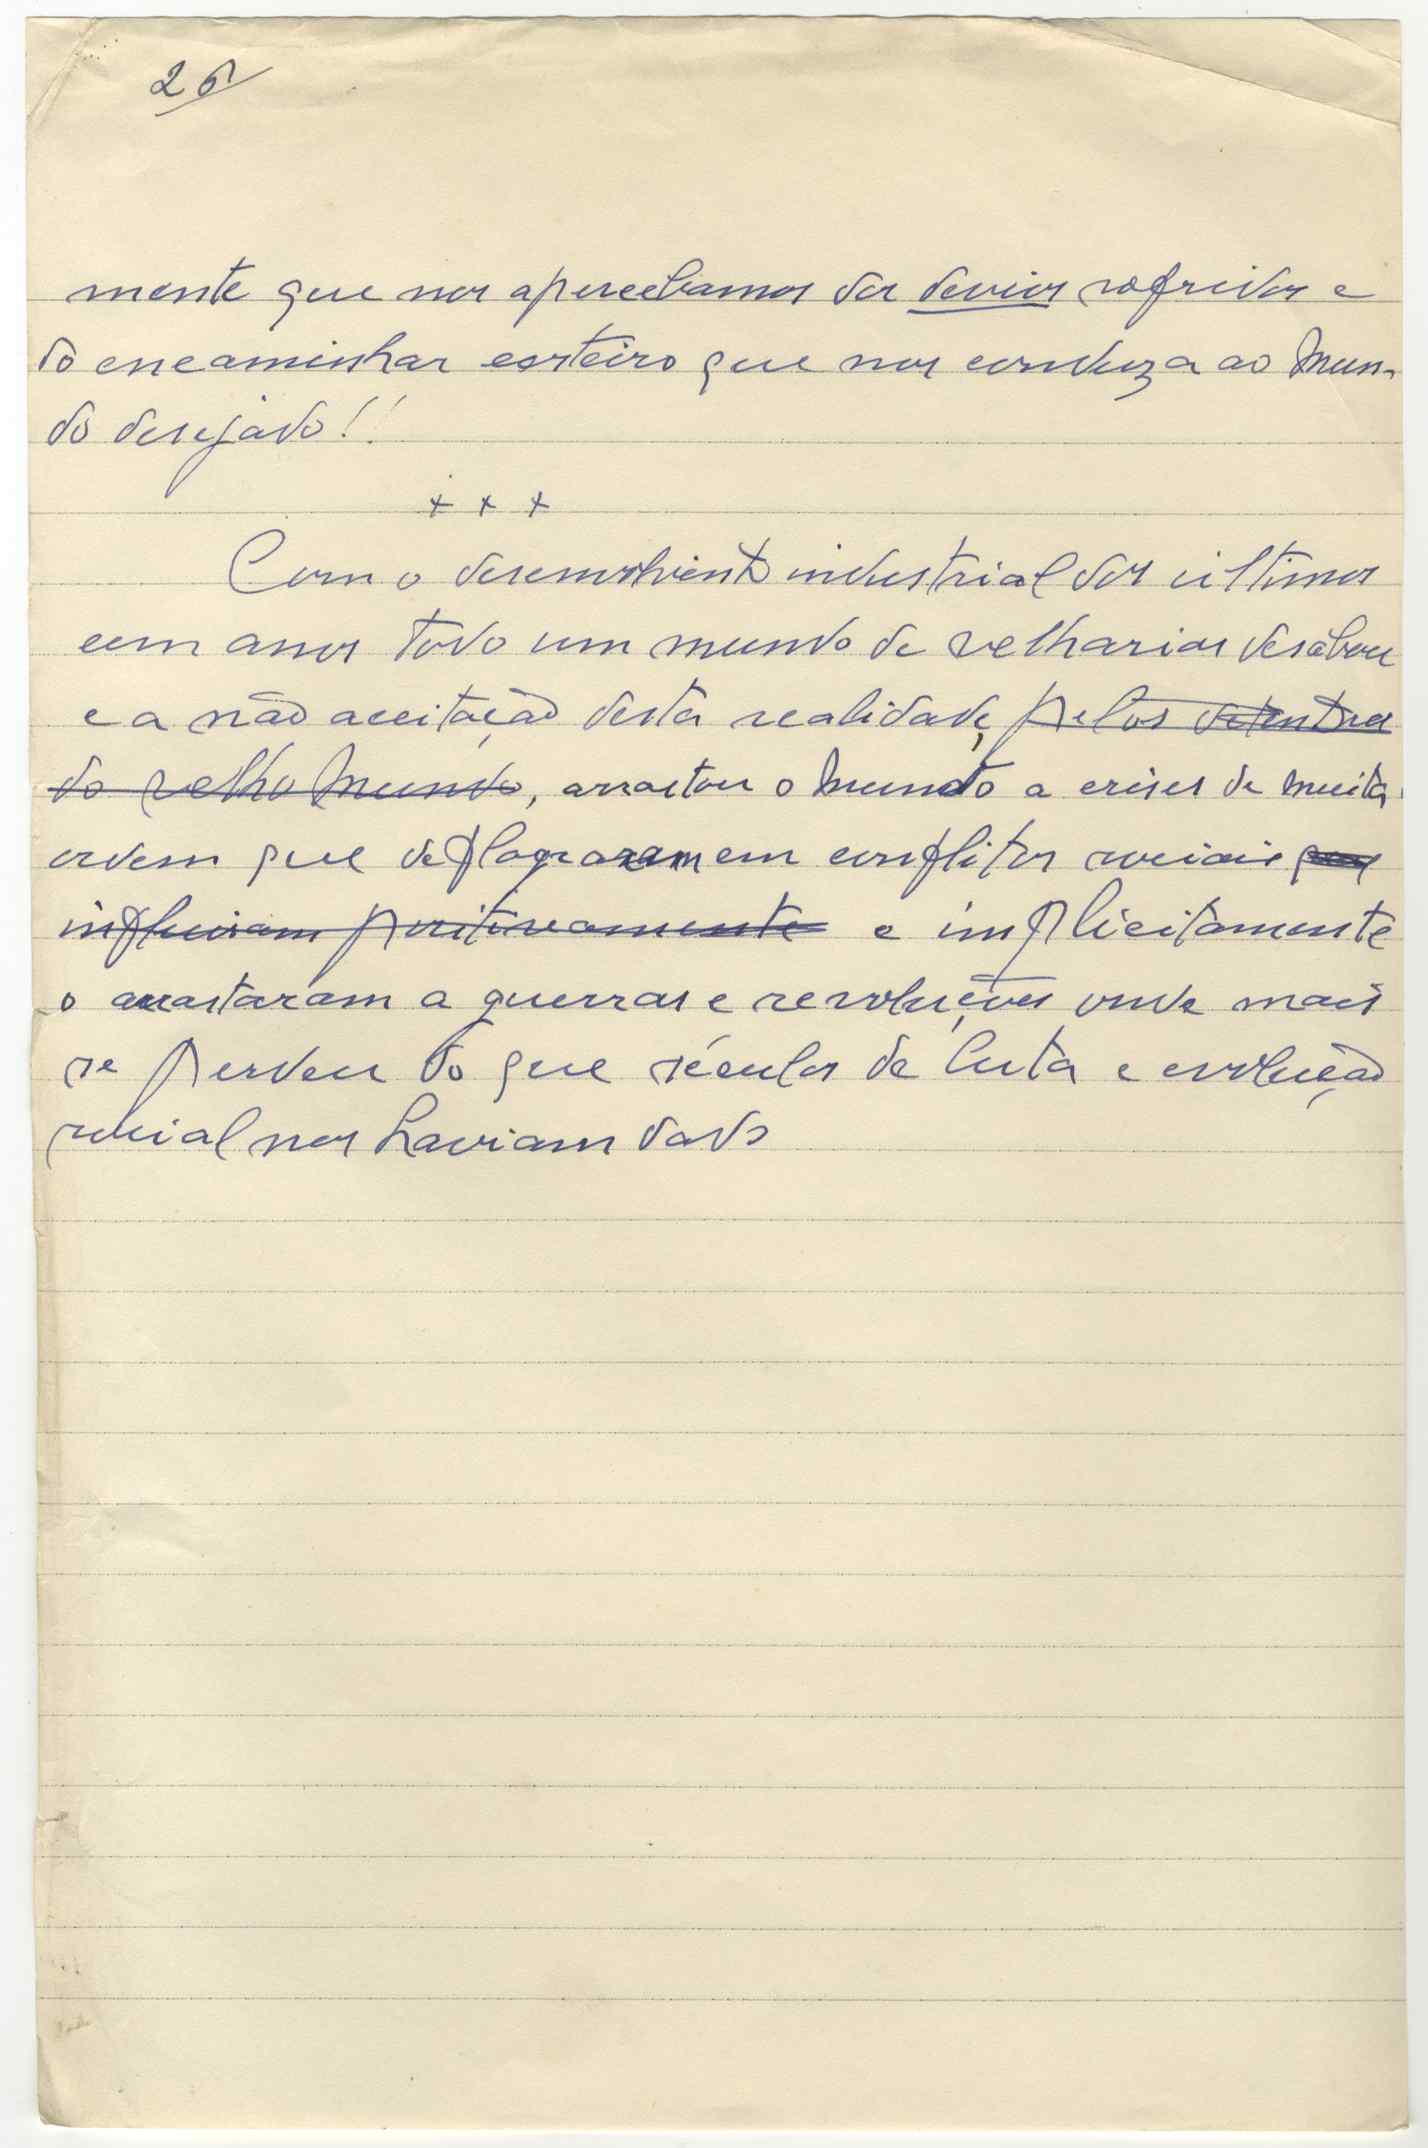 26
mente que nos apercebamos dos devios sofridos e
do encaminhar certeiro que nos conduza ao Mun-
do desejado!!
+ + +
Com o desenvolvient industrial dos ultimos
cem anos todo um mundo de velharias desabou
e a não aceitação desta realidade, pelos detentres
do velho Mundo, arrastou o Mundo a crises de muita
ordem que deflagraram em conflitos sociais que
influiram positivamente e implicitamente
o arrastaram a guerras e revoluções onde mais
se perdeu do que séculos de luta e evolução
social nos haviam dado